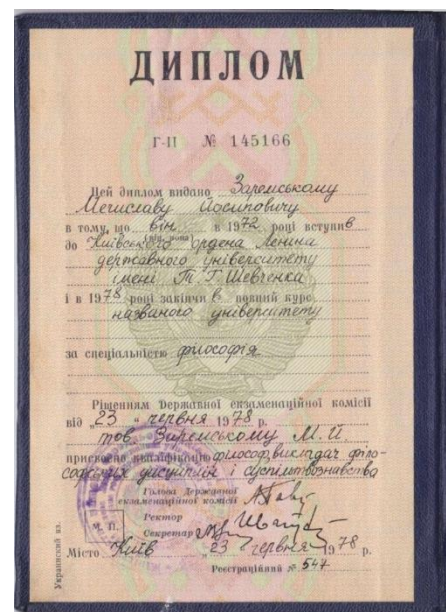 ДИПЛОМ
Г-II № 145166
Цей диплом видано Заремському
Мечиславу Йосиповичу
в тому, що він в 1972 році вступив
(він, вона)
до Київського ордена Леніна
державного університету
імені Т. Г. Шевченка
і в 1978 році закінчив повний курс
названого університету
за спеціальністю філософія
Рішенням Державної екзаменаційної комісії
від „23“ червня 1978 р.
тов. Заремському М. Й.
присвоєно кваліфікацію філософ, викладач філо-
софських дисциплін і суспільствознавства
Голова Державної
екзаменаційної комісії
Ректор
М. П.
Секретар
Місто Київ „23“ червня 1978 р.
Реєстраційний № 547
Украинский яз.